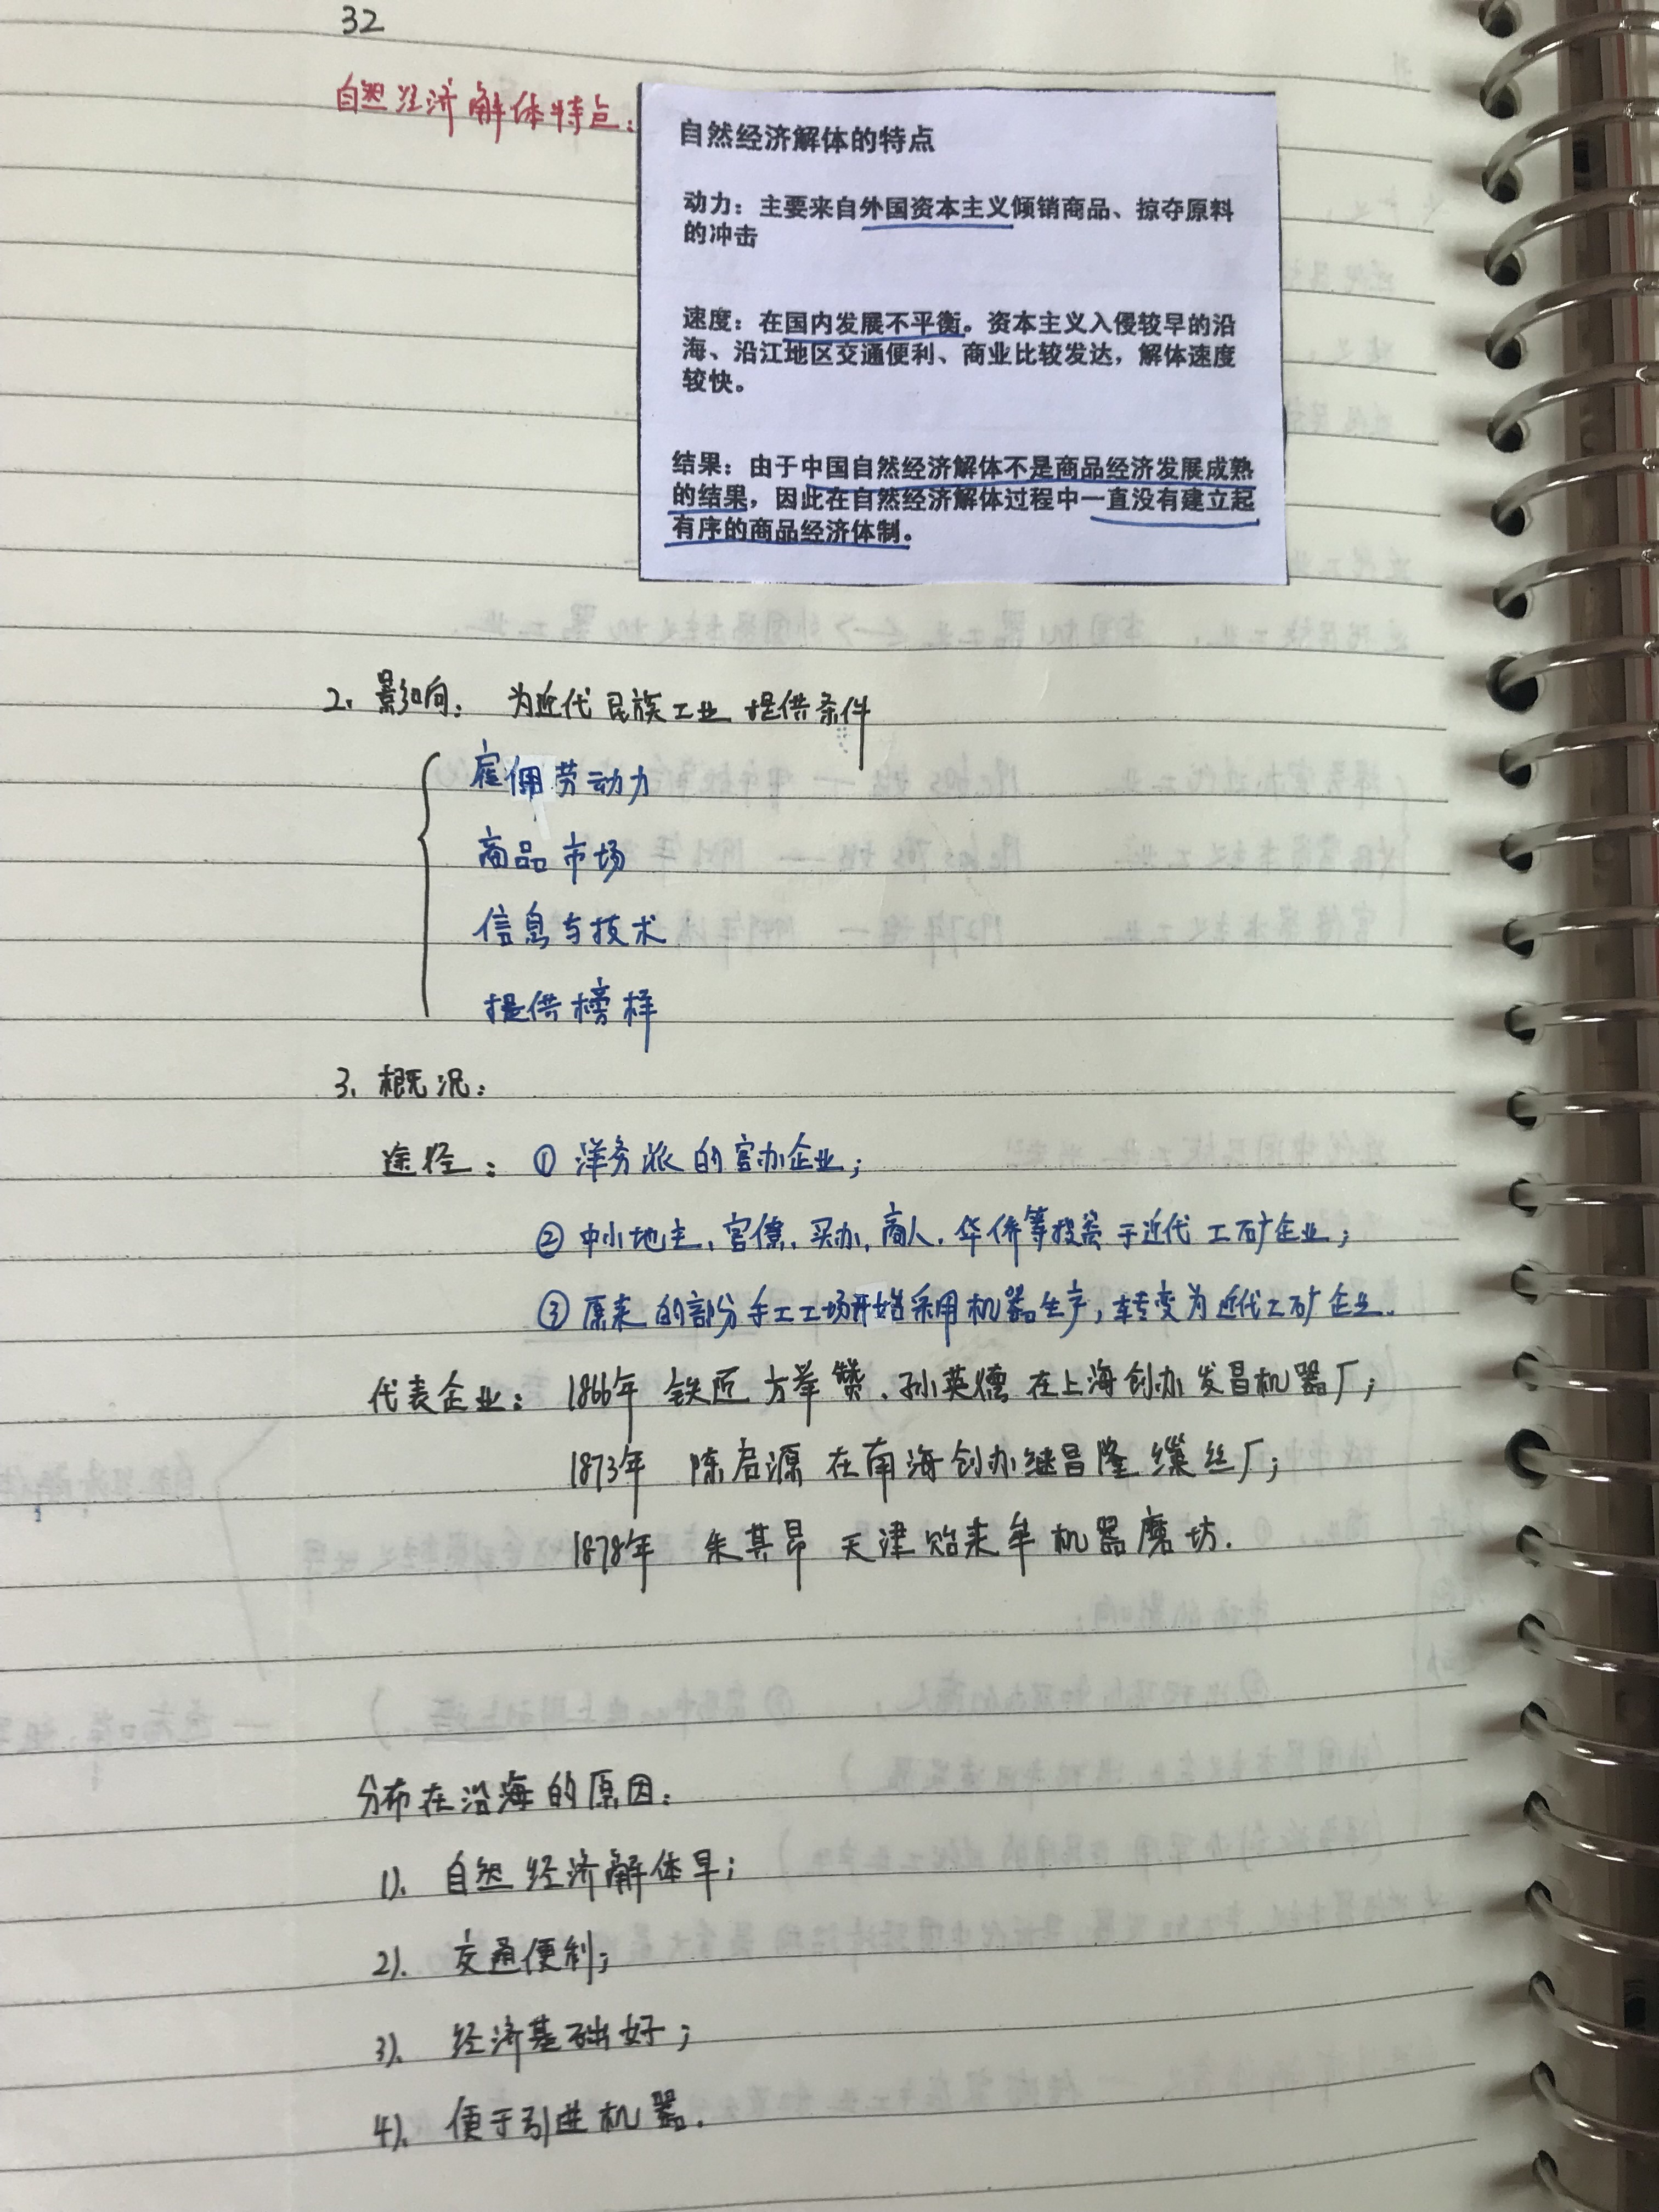 32
自然经济解体特点：
自然经济解体的特点
动力：主要来自外国资本主义倾销商品、掠夺原料
的冲击
速度：在国内发展不平衡。资本主义入侵较早的沿
海、沿江地区交通便利、商业比较发达，解体速度
较快。
结果：由于中国自然经济解体不是商品经济发展成熟
的结果，因此在自然经济解体过程中一直没有建立起
有序的商品经济体制。
2、影响：为近代民族工业提供条件
雇佣劳动力
商品市场
信息与技术
提供榜样
3、概况：
途径：①洋务派的官办企业；
②中小地主、官僚、买办、商人、华侨等投资于近代工矿企业；
③原来的部分手工工场开始采用机器生产，转变为近代工矿企业.
代表企业：1866年 铁匠方举赞、孙英德在上海创办发昌机器厂；
1873年 陈启源在南海创办继昌隆缫丝厂；
1878年 朱其昂 天津贻来牟机器磨坊.
分布在沿海的原因：
1). 自然经济解体早；
2). 交通便利；
3). 经济基础好；
4). 便于引进机器.